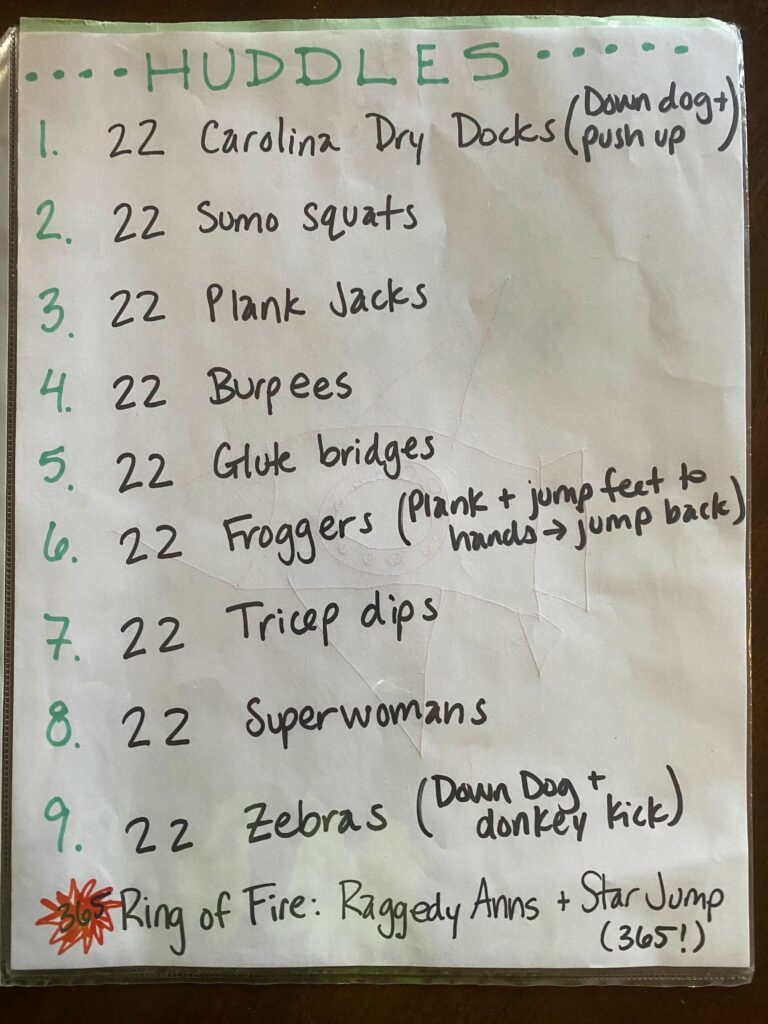 ....HUDDLES.....
1. 22 Carolina Dry Docks (Down dog +
push up)
2. 22 Sumo squats
3. 22 Plank Jacks
4. 22 Burpees
5. 22 Glute bridges
6. 22 Froggers (Plank + jump feet to
hands → jump back)
7. 22 Tricep dips
8. 22 Superwomans
9. 22 Zebras (Down Dog +
donkey kick)
365 Ring of Fire: Raggedy Anns + Star Jump
(365!)